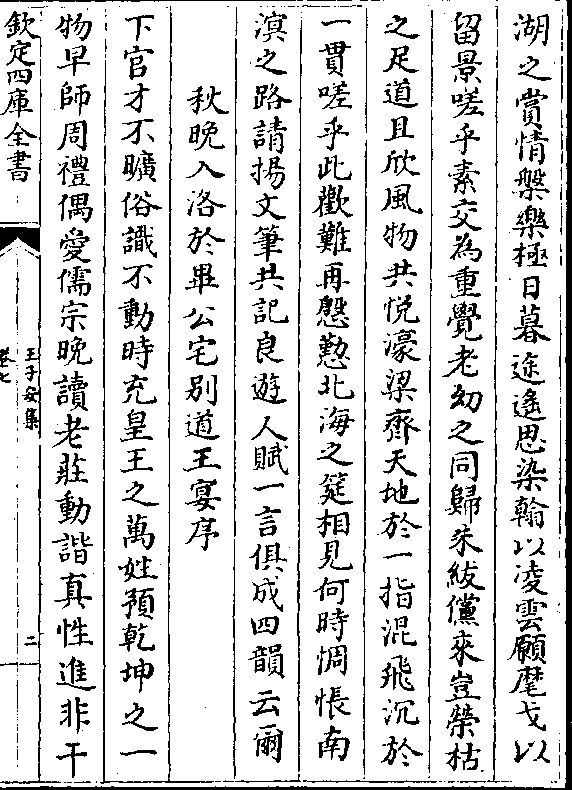 湖之賞情槃樂極日暮途遙思染翰以凌雲願麾戈以
留景嗟乎素交為重覺老幼之同歸朱紱儻來豈榮枯
之足道且欣風物共悦濠梁齊天地於一指混飛沉於
一貫嗟乎此歡難再慇懃北海之筵相見何時惆悵南
溟之路請揚文筆共記良遊人賦一言俱成四韻云爾
秋晚入洛於畢公宅别道王宴序
下官才不曠俗識不動時充皇王之萬姓預乾坤之一
物早師周禮偶愛儒宗晚讀老莊動諧真性進非干
欽定四庫全書
王子安集
卷七
二